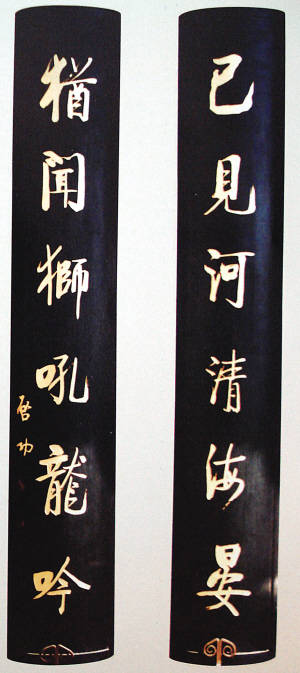 已見河清海晏
猶聞獅吼龍吟
啓功